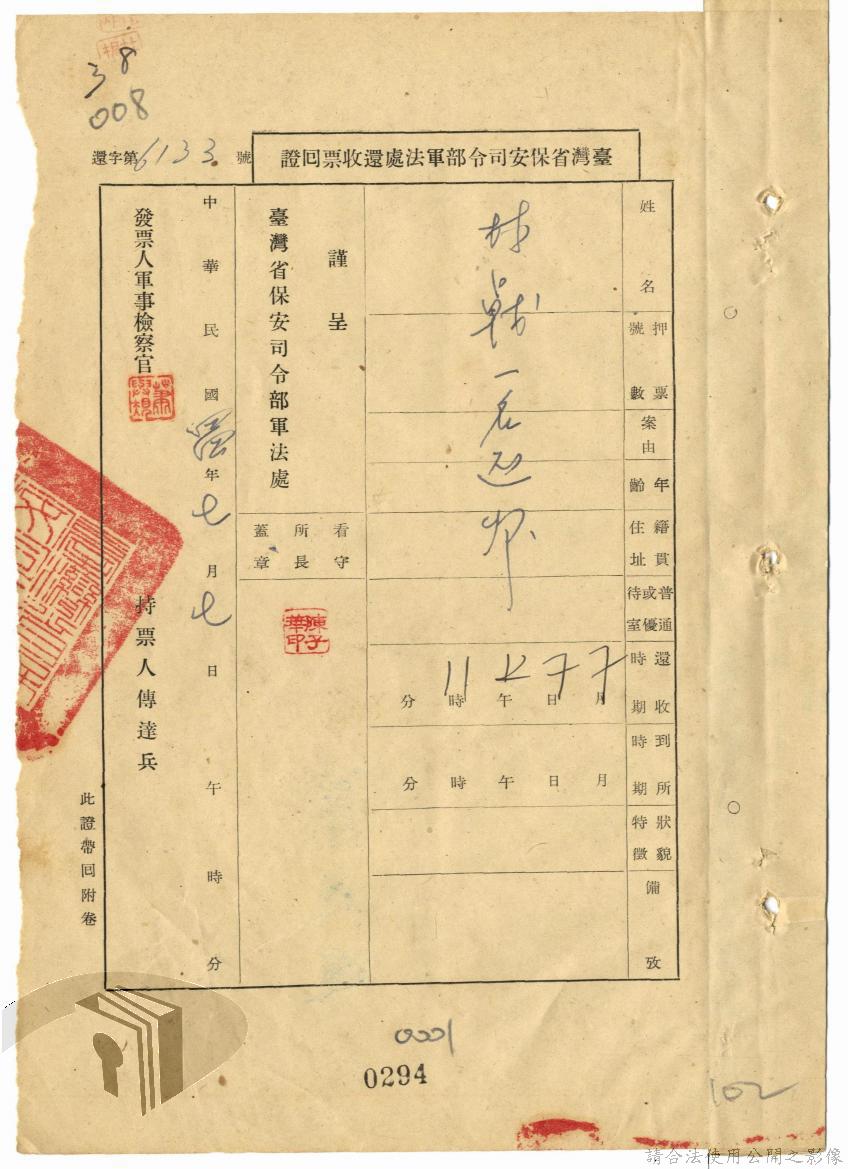 38
008
臺灣省保安司令部軍法處還收票回證
還字第6133號
姓名
林
一名
押票號數
案由
年齡
籍貫住址
普通或優待室
還收時期
7月7日 午11時 分
到所時期
月 日 午 時 分
狀貌特徵
備攷
謹呈
臺灣省保安司令部軍法處
看守所所長蓋章
陳子華印
中華民國 年七月七日 午 時 分
發票人軍事檢察官
持票人傳達兵
此證帶回附卷
0294
102
請合法使用公開之影像